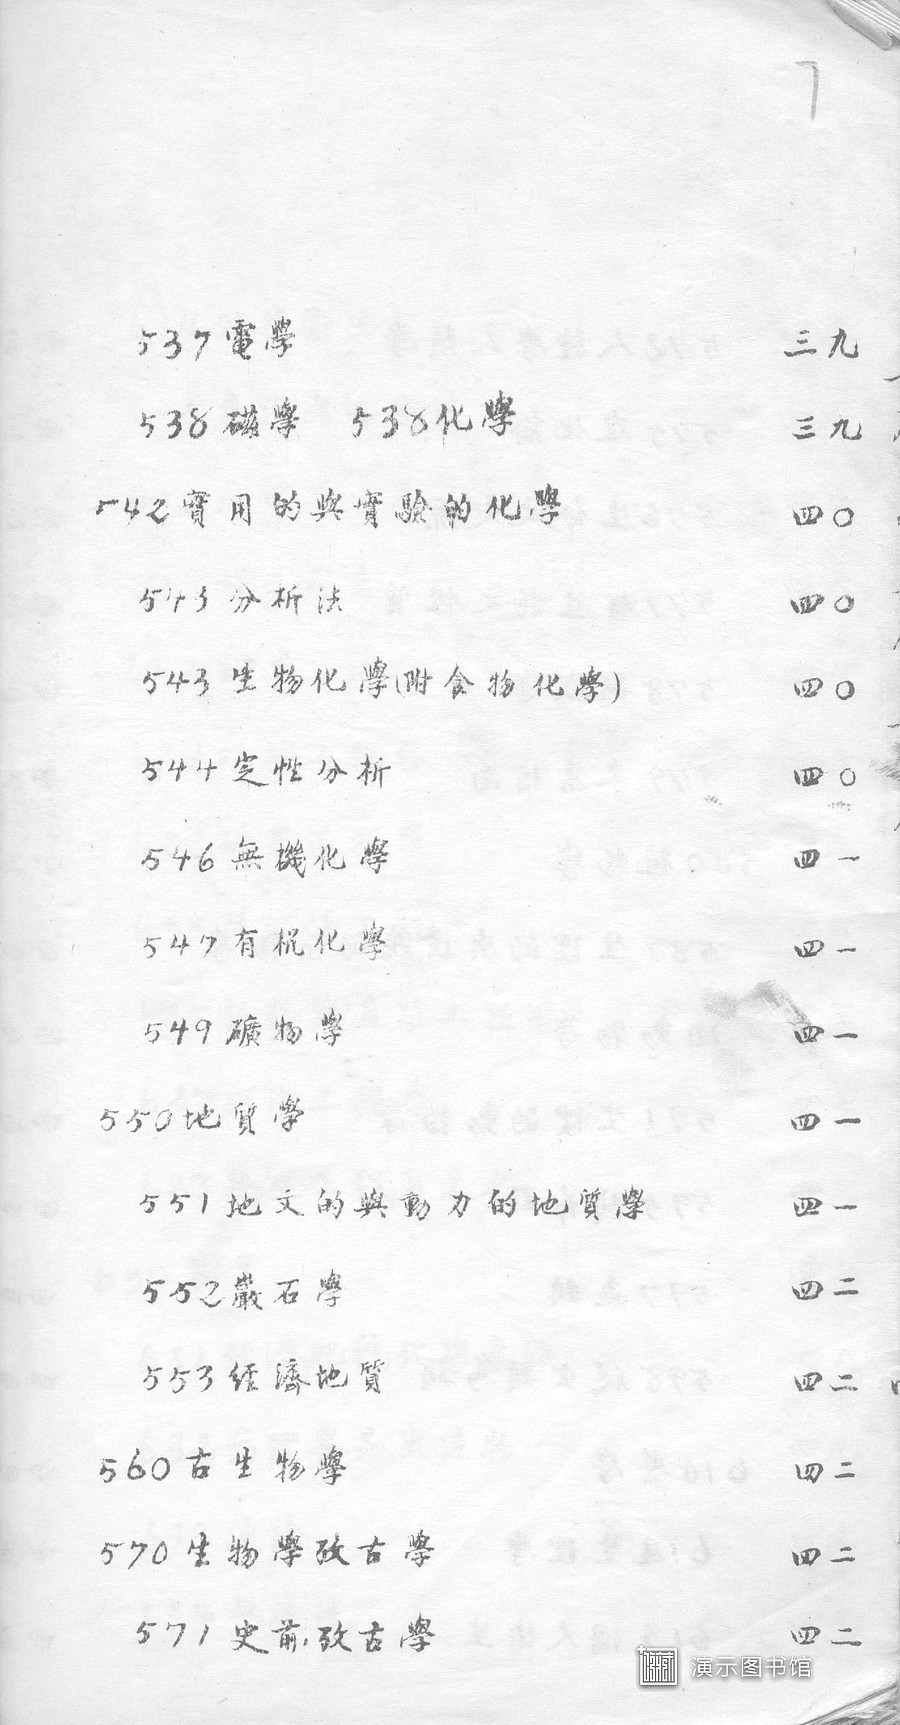 7
537 電學 三九
538 磁學 538 化學 三九
542 實用的與實驗的化學 四〇
543 分析法 四〇
543 生物化學(附食物化學) 四〇
544 定性分析 四〇
546 無機化學 四一
547 有机化學 四一
549 礦物學 四一
550 地質學 四一
551 地文的與動力的地質學 四一
552 巖石學 四二
553 經濟地質 四二
560 古生物學 四二
570 生物學攷古學 四二
571 史前攷古學 四二
演示图书馆